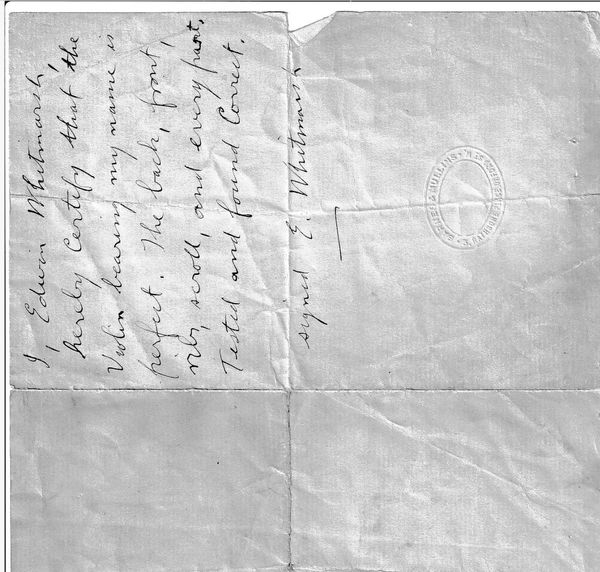 I, Edwin Whitmarsh,
hereby Certify that the
Violin bearing my name is
perfect. The back, front,
rib, scroll, and every part,
Tested and found Correct.
signed E. Whitmarsh